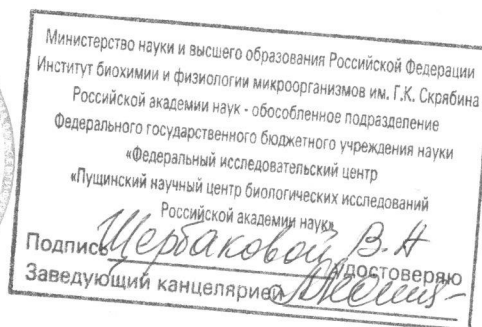 Министерство науки и высшего образования Российской Федерации
Институт биохимии и физиологии микроорганизмов им. Г.К. Скрябина
Российской академии наук - обособленное подразделение
Федерального государственного бюджетного учреждения науки
«Федеральный исследовательский центр
«Пущинский научный центр биологических исследований
Российской академии наук»
Подпись Щербаковой В.А удостоверяю
Заведующий канцелярией